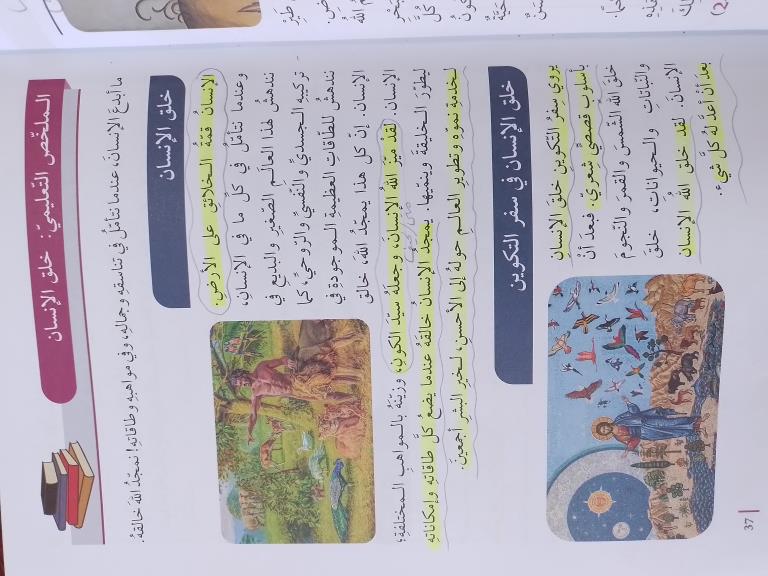 الملخّص التعليميّ: خلق الإنسان
ما أبدعَ الإنسانَ، عندما نتأمّل في تناسقه وجماله، وفي مواهبه وطاقاته! نمجّدُ اللهَ خالقهُ.
خلق الإنسان
الإنسانُ قمّةُ الخلائقِ على الأرضِ.
وعندما نتأمّلُ في كلِّ ما في الإنسان،
نندهشُ لهذا العالمِ الصّغيرِ والبديعِ في
تركيبِه الجسديِّ والنّفسيِّ والرّوحيِّ، كما
نندهشُ للطّاقاتِ العظيمةِ الموجودةِ في
الإنسان. إنّ كل هذا يمجدُ اللهَ، خالق
الإنسان. لقد ميّزَ اللهُ الإنسانَ، وجعلَهُ سيّدَ الكونِ، وزيّنَهُ بالمواهبِ المختلفةِ؛
ليطوّرَ الخليقةَ وينمّيها. يمجدُ الإنسانُ خالقَهُ عندما يضعُ كلَّ طاقاتِه وإمكاناتِه
لخدمةِ نموّه وتطويرِ العالمِ حولهُ إلى الأحسنِ، لخيرِ البشرِ أجمعين.
خلق الإنسان في سفر التكوين
يروي سِفرُ التكوينِ خلقَ الإنسانِ
بأسلوبٍ قصصيٍّ شعريّ. فبعدَ أنْ
خلقَ اللهُ الشمسَ والقمرَ والنّجومَ
والنّباتات والحيواناتِ، خلقَ
الإنسانَ. لقد خلقَ اللهُ الإنسانَ
بعدَ أن أعدَّ لهُ كلَّ شيءٍ.
37